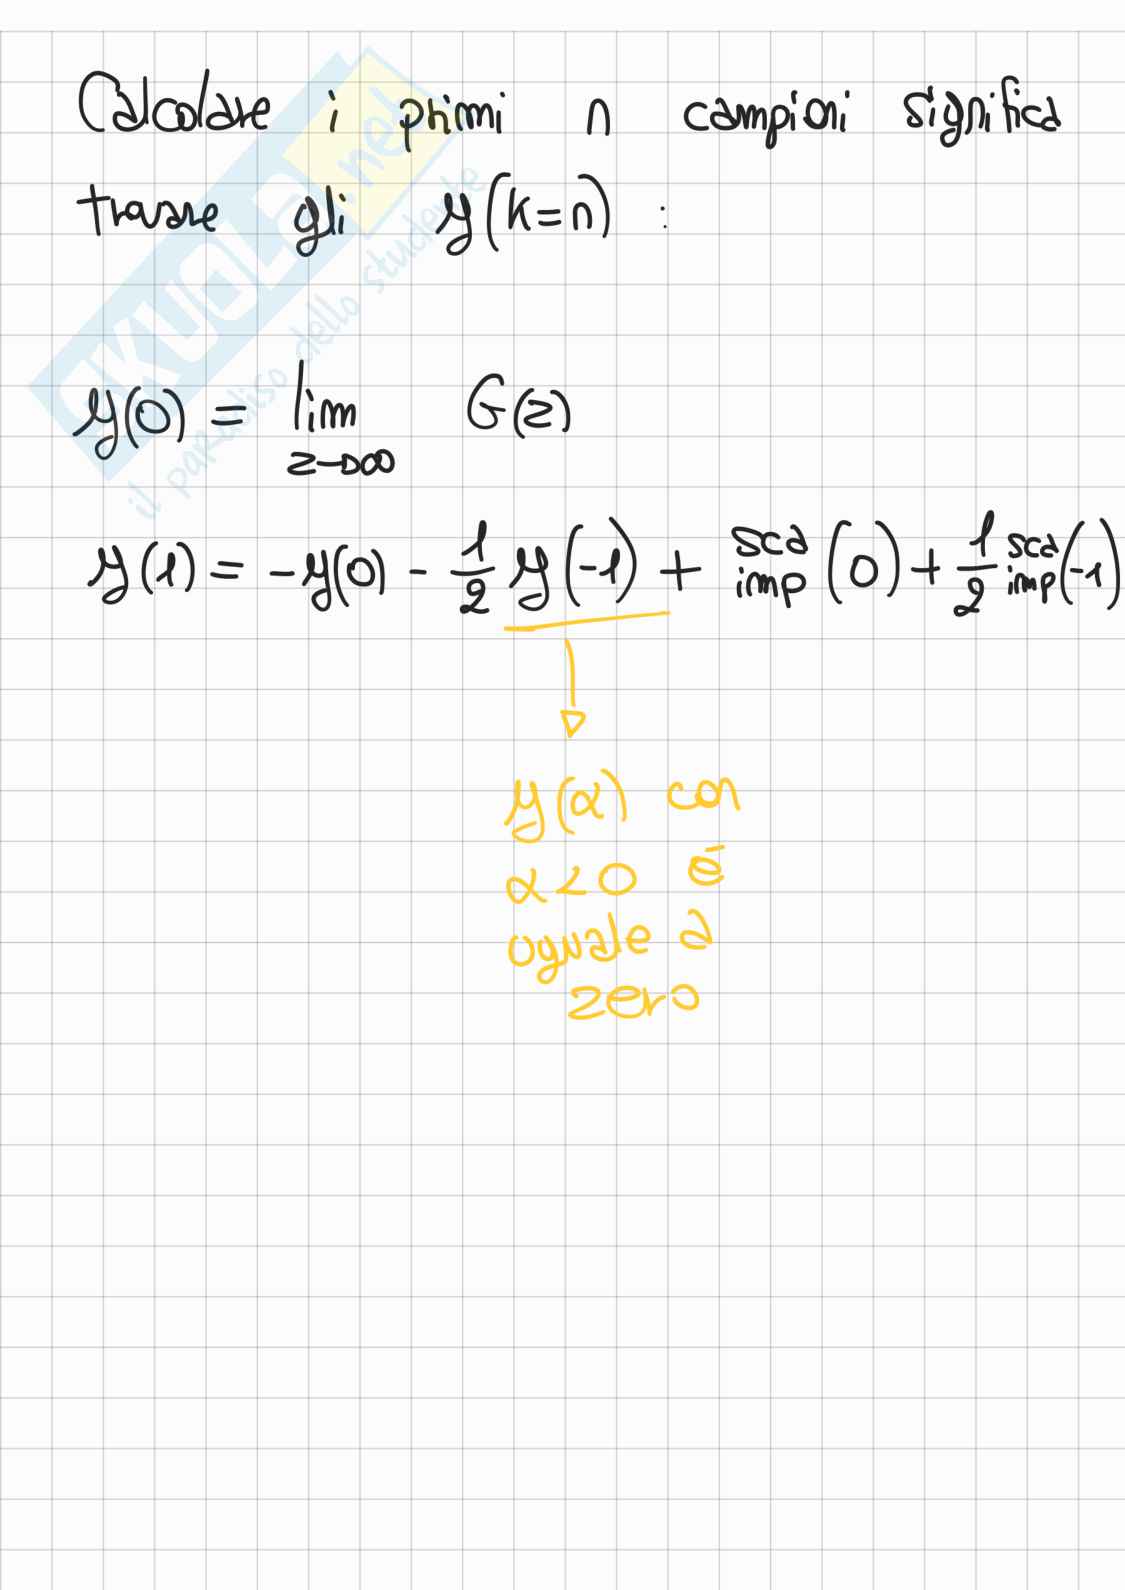 Calcolare i primi n campioni significa
trovare gli y(k=n) :
y(0) = lim G(z)
z→∞
y(1) = -y(0) - 1/2 y(-1) + sca imp (0) + 1/2 sca imp (-1)
y(α) con
α<0 è
uguale a
zero
SKUOLA.net
il paradiso dello studente